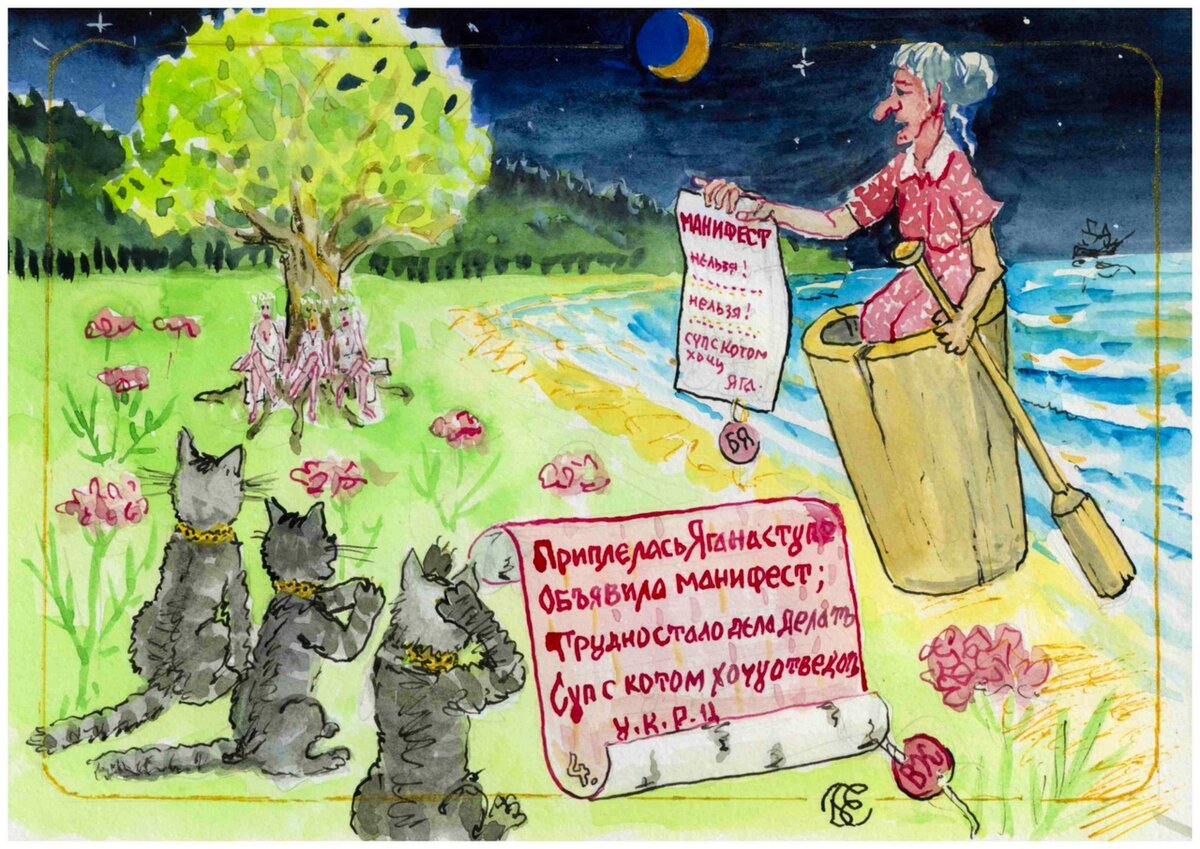 МАНИФЕСТ
НЕЛЬЗЯ!
НЕЛЬЗЯ!
СУП С КОТОМ
ХОЧУ
ЯГА.
БЯ
Приплелась Яга на ступе
Объявила манифест;
Трудно стало дела делать
Суп с котом хочу отведать
У.К.Р.Ц
4.
ВЖ
ВЕ